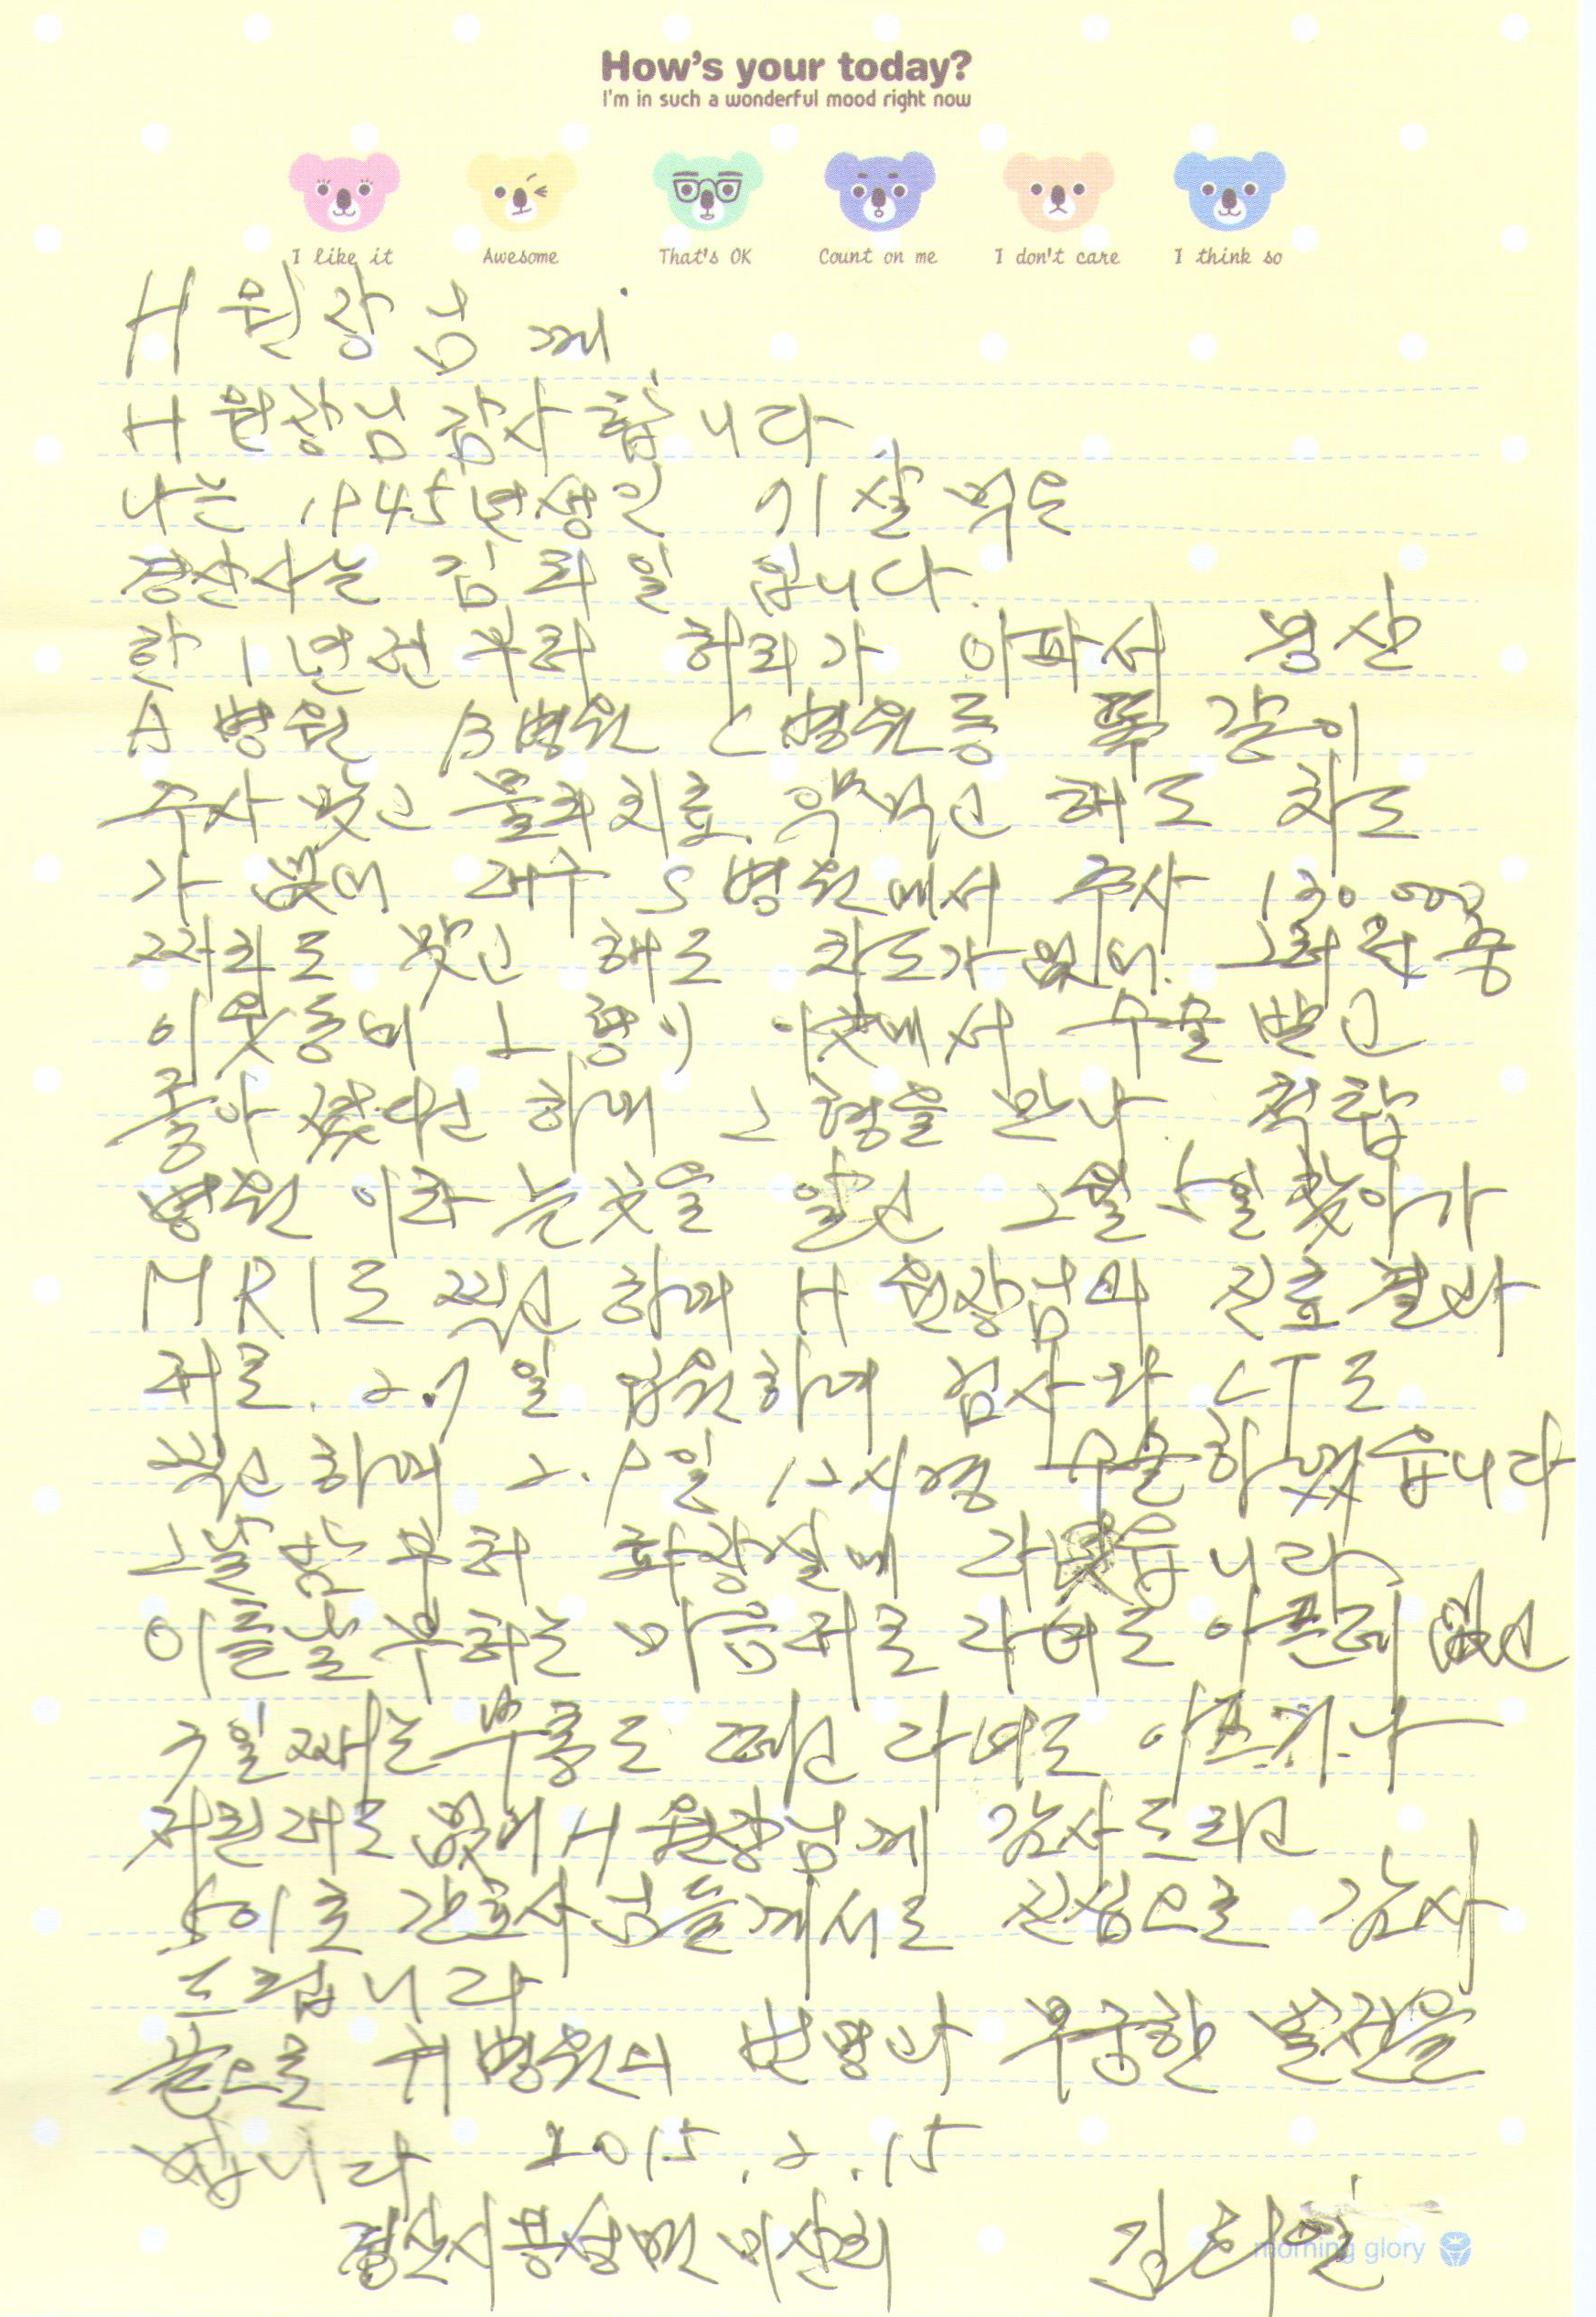 How's your today?
I'm in such a wonderful mood right now
I like it Awesome That's OK Count on me I don't care I think so
H 원장님께
H 원장님 감사합니다
나는 1945년생인 기 살먹은
경산사는 김 일 입니다.
한 1년전부터 허리가 아파서 경산
A 병원 B병원 C병원등 똑같이
주사 맞고 물리치료 약먹고 해도 차도
가 없어 대구 S병원에서 주사 130,000
짜리도 맞고 해도 차도가 없어. 그러던중
이웃동네 그 형이 이곳에서 수술받고
좋아졌다고 하며 그 형을 만나 척탑
병원 이라는곳을 알고 2월 5일 찾아가
MRI도 찍고 하여 H 원장님의 진료결과
대로. 2.7일 입원하여 검사와 CT도
찍고 하여 2.9일 12시경 수술하였습니다
그날밤부터 화장실에 다녔습니다
이틀날부터는 마음대로 다녀도 아픈데 없고
3일째는 무통도 떼고 다녀도 아프거나
저린데도 없어 H 원장님께 감사드리고
5이호 간호사님들께서도 진심으로 감사
드립니다
끝으로 귀병원의 번영과 무궁한 발전을
빕니다 2015.2.15
경산시 용성면 미산리 김 일
morning glory